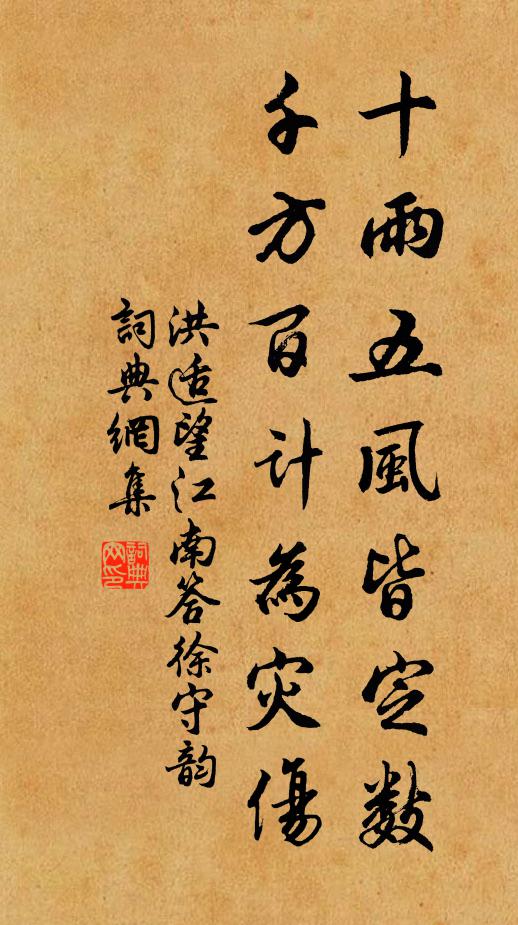 十雨五風皆定數
千方百計為灾傷
洪适望江南答徐守韵
詞典網集
詞典網印